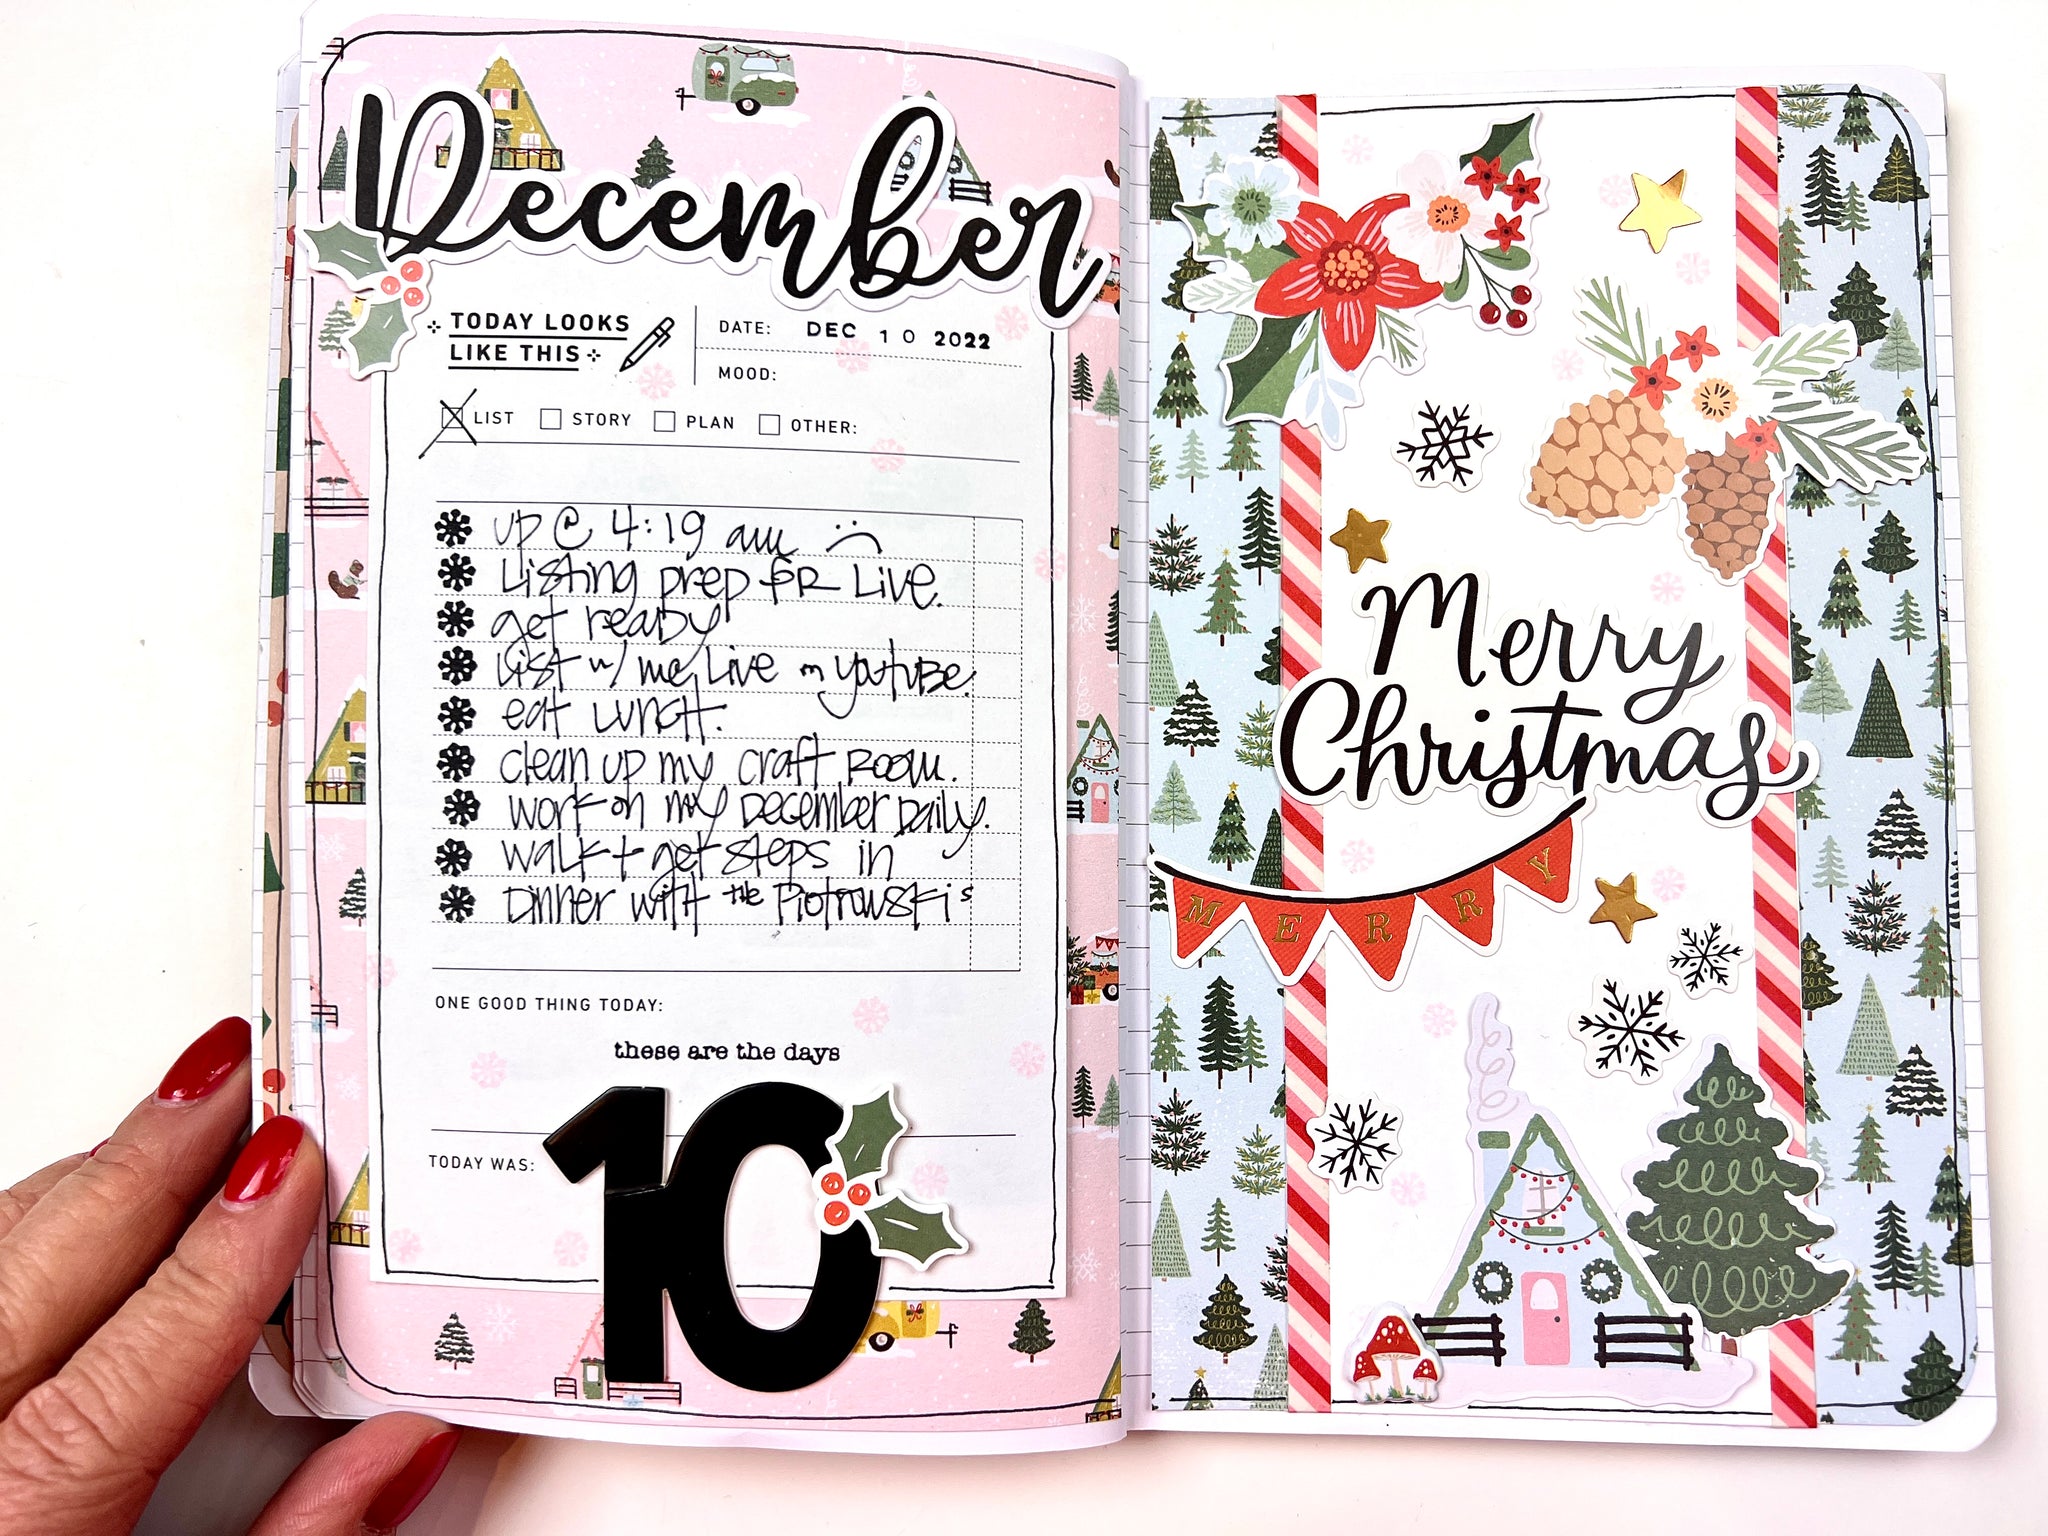 December
TODAY LOOKS
LIKE THIS
DATE: DEC 10 2022
MOOD:
LIST STORY PLAN OTHER:
up @ 4:19 am :(
Listing prep for Live.
get ready
List w/ me Live on youtube.
eat lunch.
clean up my craft room.
work on my December Daily.
walk + get steps in
Dinner with the Piotrowskis
ONE GOOD THING TODAY:
these are the days
TODAY WAS:
10
Merry
Christmas
MERRY